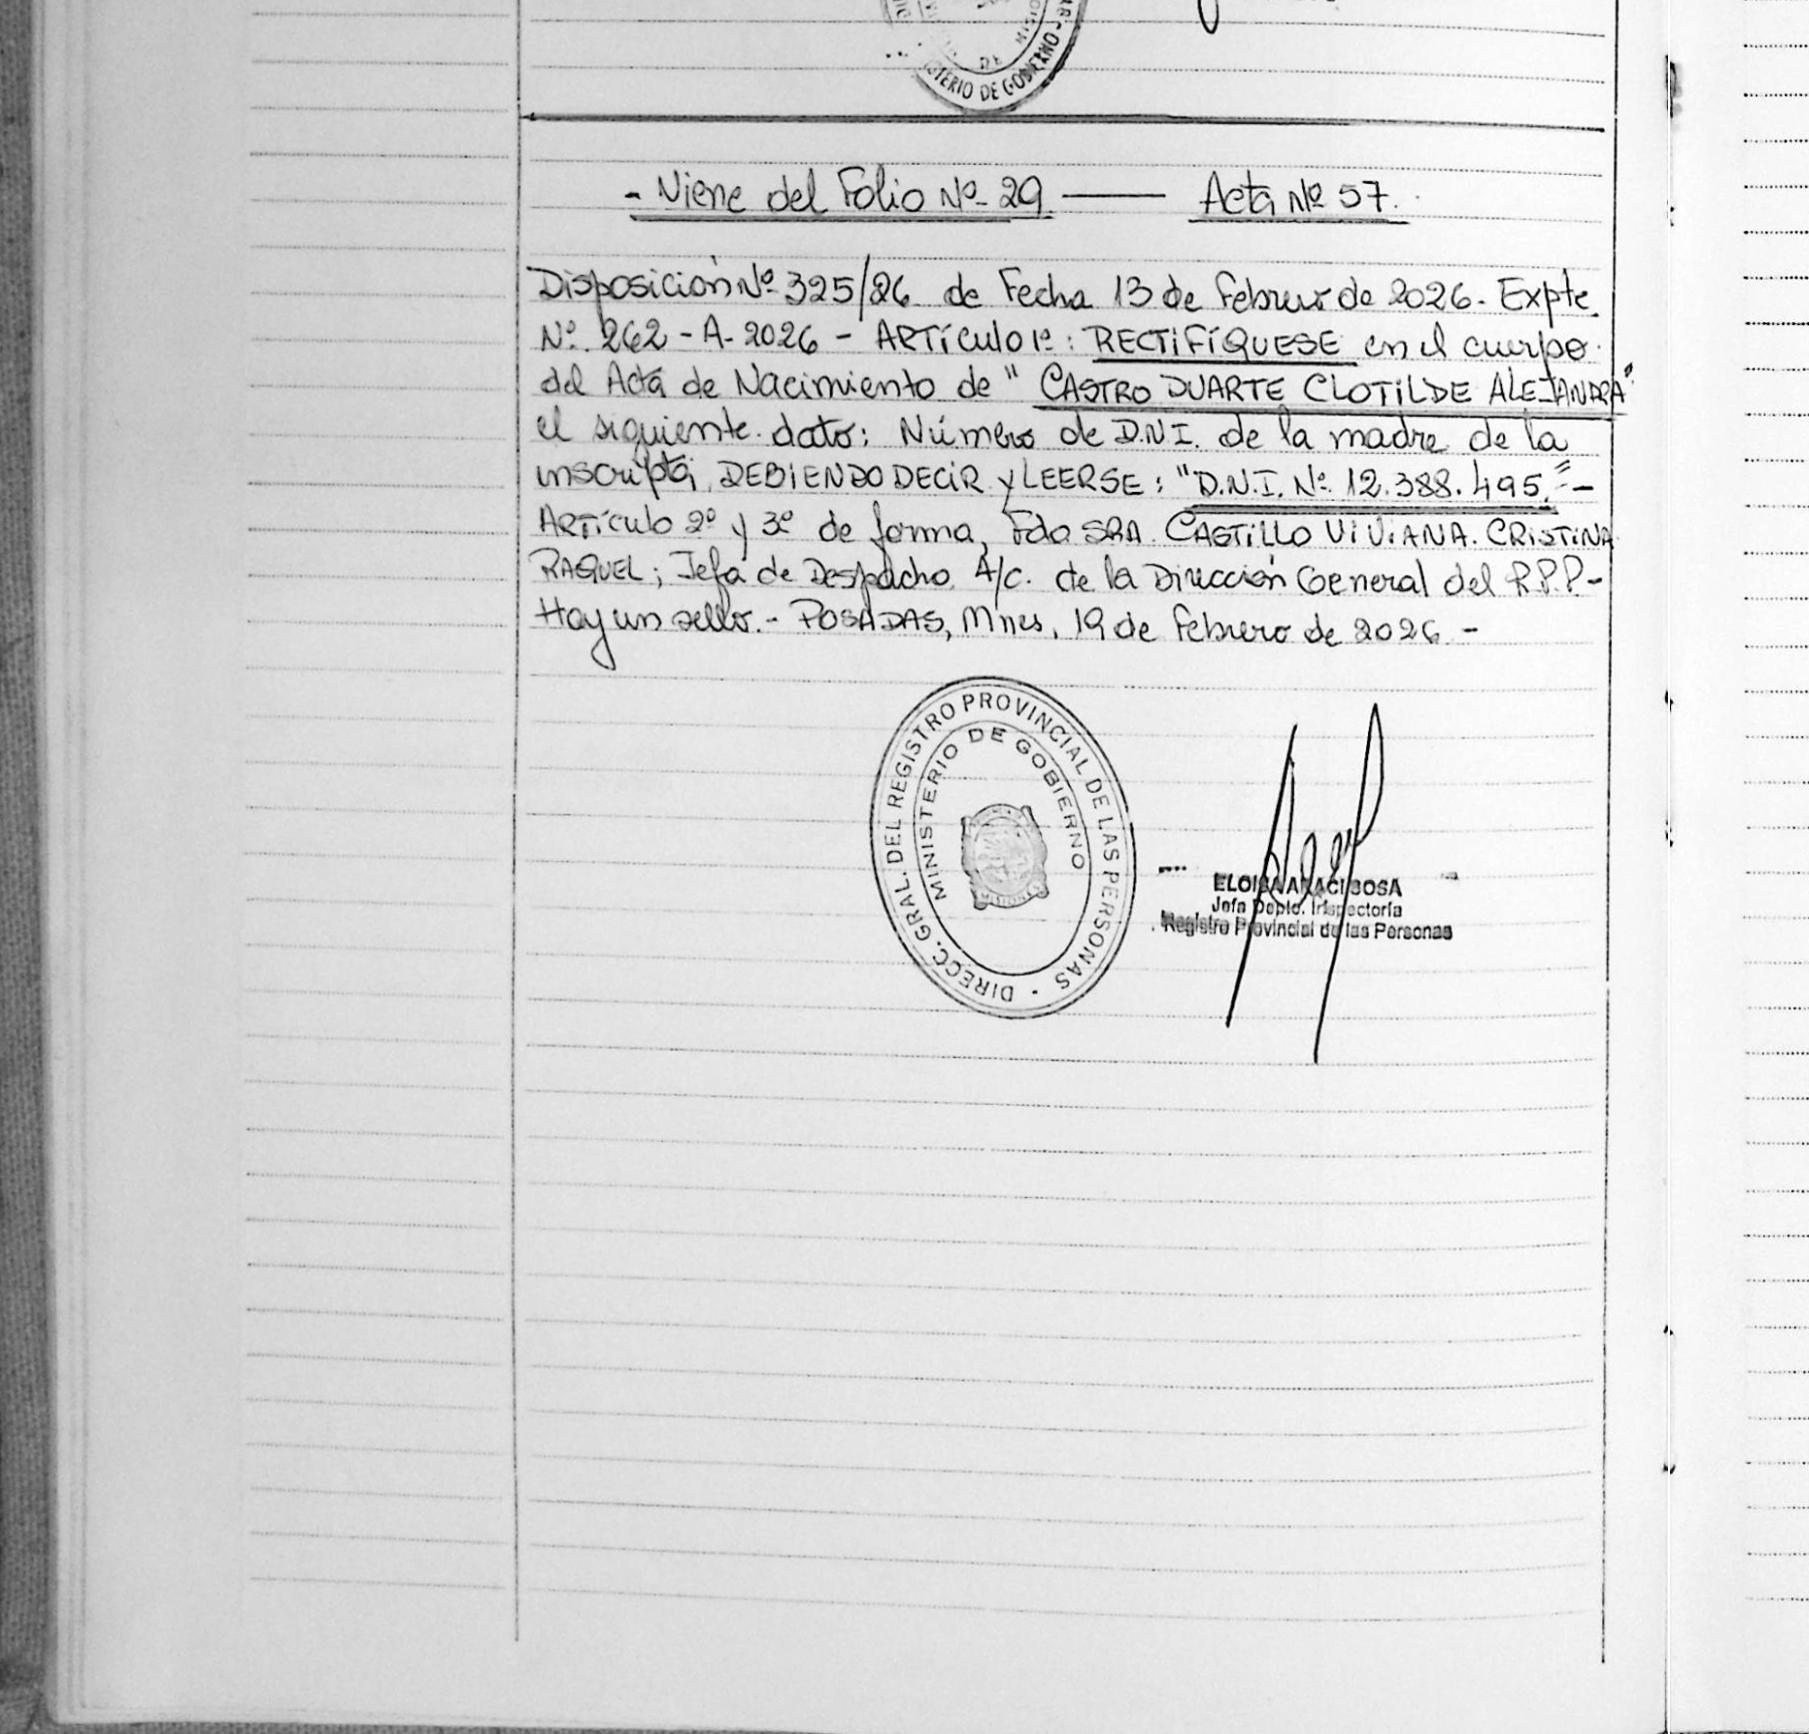 TERIO DE GOBIERNO
- Viene del Folio Nº 29 —— Acta Nº 57.
Disposición Nº 325/26 de Fecha 13 de Febrero de 2026. Expte.
Nº 262 - A - 2026 - ARTÍCULO 1º: RECTIFÍQUESE en el cuerpo
del Acta de Nacimiento de "CASTRO DUARTE CLOTILDE ALEJANDRA"
el siguiente dato: Número de D.N.I. de la madre de la
inscripta, DEBIENDO DECIR y LEERSE: "D.N.I. Nº 12.388.495." -
ARTÍCULO 2º y 3º de forma, Fdo SRA. CASTILLO VIVIANA. CRISTINA
RAQUEL; Jefa de Despacho A/C. de la Dirección General del R.P.P -
Hay un sello. - POSADAS, Mnes, 19 de Febrero de 2026. -
DIRECC. GRAL. DEL REGISTRO PROVINCIAL DE LAS PERSONAS
MINISTERIO DE GOBIERNO
MISIONES
ELOISA ARACI SOSA
Jefa Depto. Inspectoría
Registro Provincial de las Personas